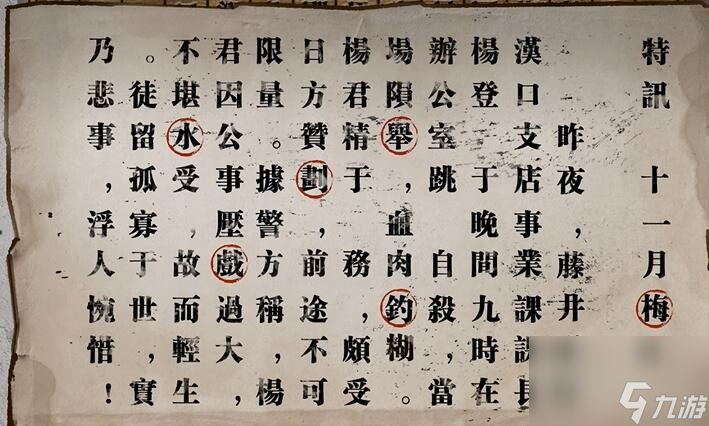 特訊 十一月梅
昨夜,藤井
漢口支店事業課課長
楊登 于晚間九時在
辦公室跳 自殺,當
場隕舉,血肉釣糊。
楊君精于 務,頗受
日方贊劃,前途,不可
限量。據警,方稱,楊
君因公事壓戲過大,
不堪水受,故而輕生
。徒留孤寡,于世,實
乃悲事,浮人惋惜!
九游